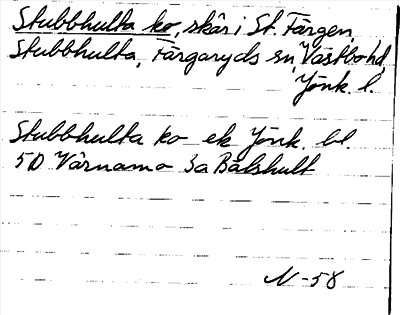 Stubbhulta ko, skär i St. Färgen,
Stubbhulta, Färgaryds sn, Västbo hd,
Jönk. l.
Stubbhulta ko ek Jönk. bl
5D Värnamo 3a Bålshult
N-58